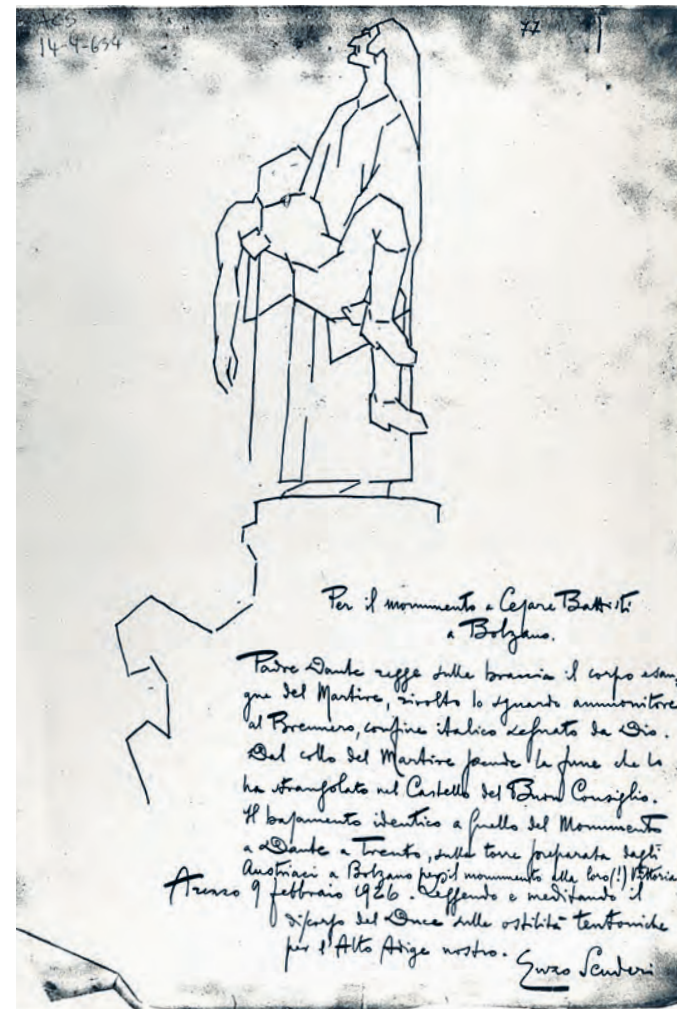 ACS
14-4-634
77
Per il monumento a Cesare Battisti
a Bolzano.
Padre Dante regge sulle braccia il corpo esan-
gue del Martire, rivolto lo sguardo ammonitore
al Brennero, confine italico segnato da Dio.
Dal collo del Martire pende la fune che lo
ha strangolato nel Castello del Buon Consiglio.
Il basamento identico a quello del Monumento
a Dante a Trento, sulla torre preparata dagli
Austriaci a Bolzano per il monumento alla loro (!) Vittoria
9 febbraio 1926. Leggendo e meditando il
discorso del Duce sulle ostilità teutoniche
per l'Alto Adige nostro.
Enzo Scuderi